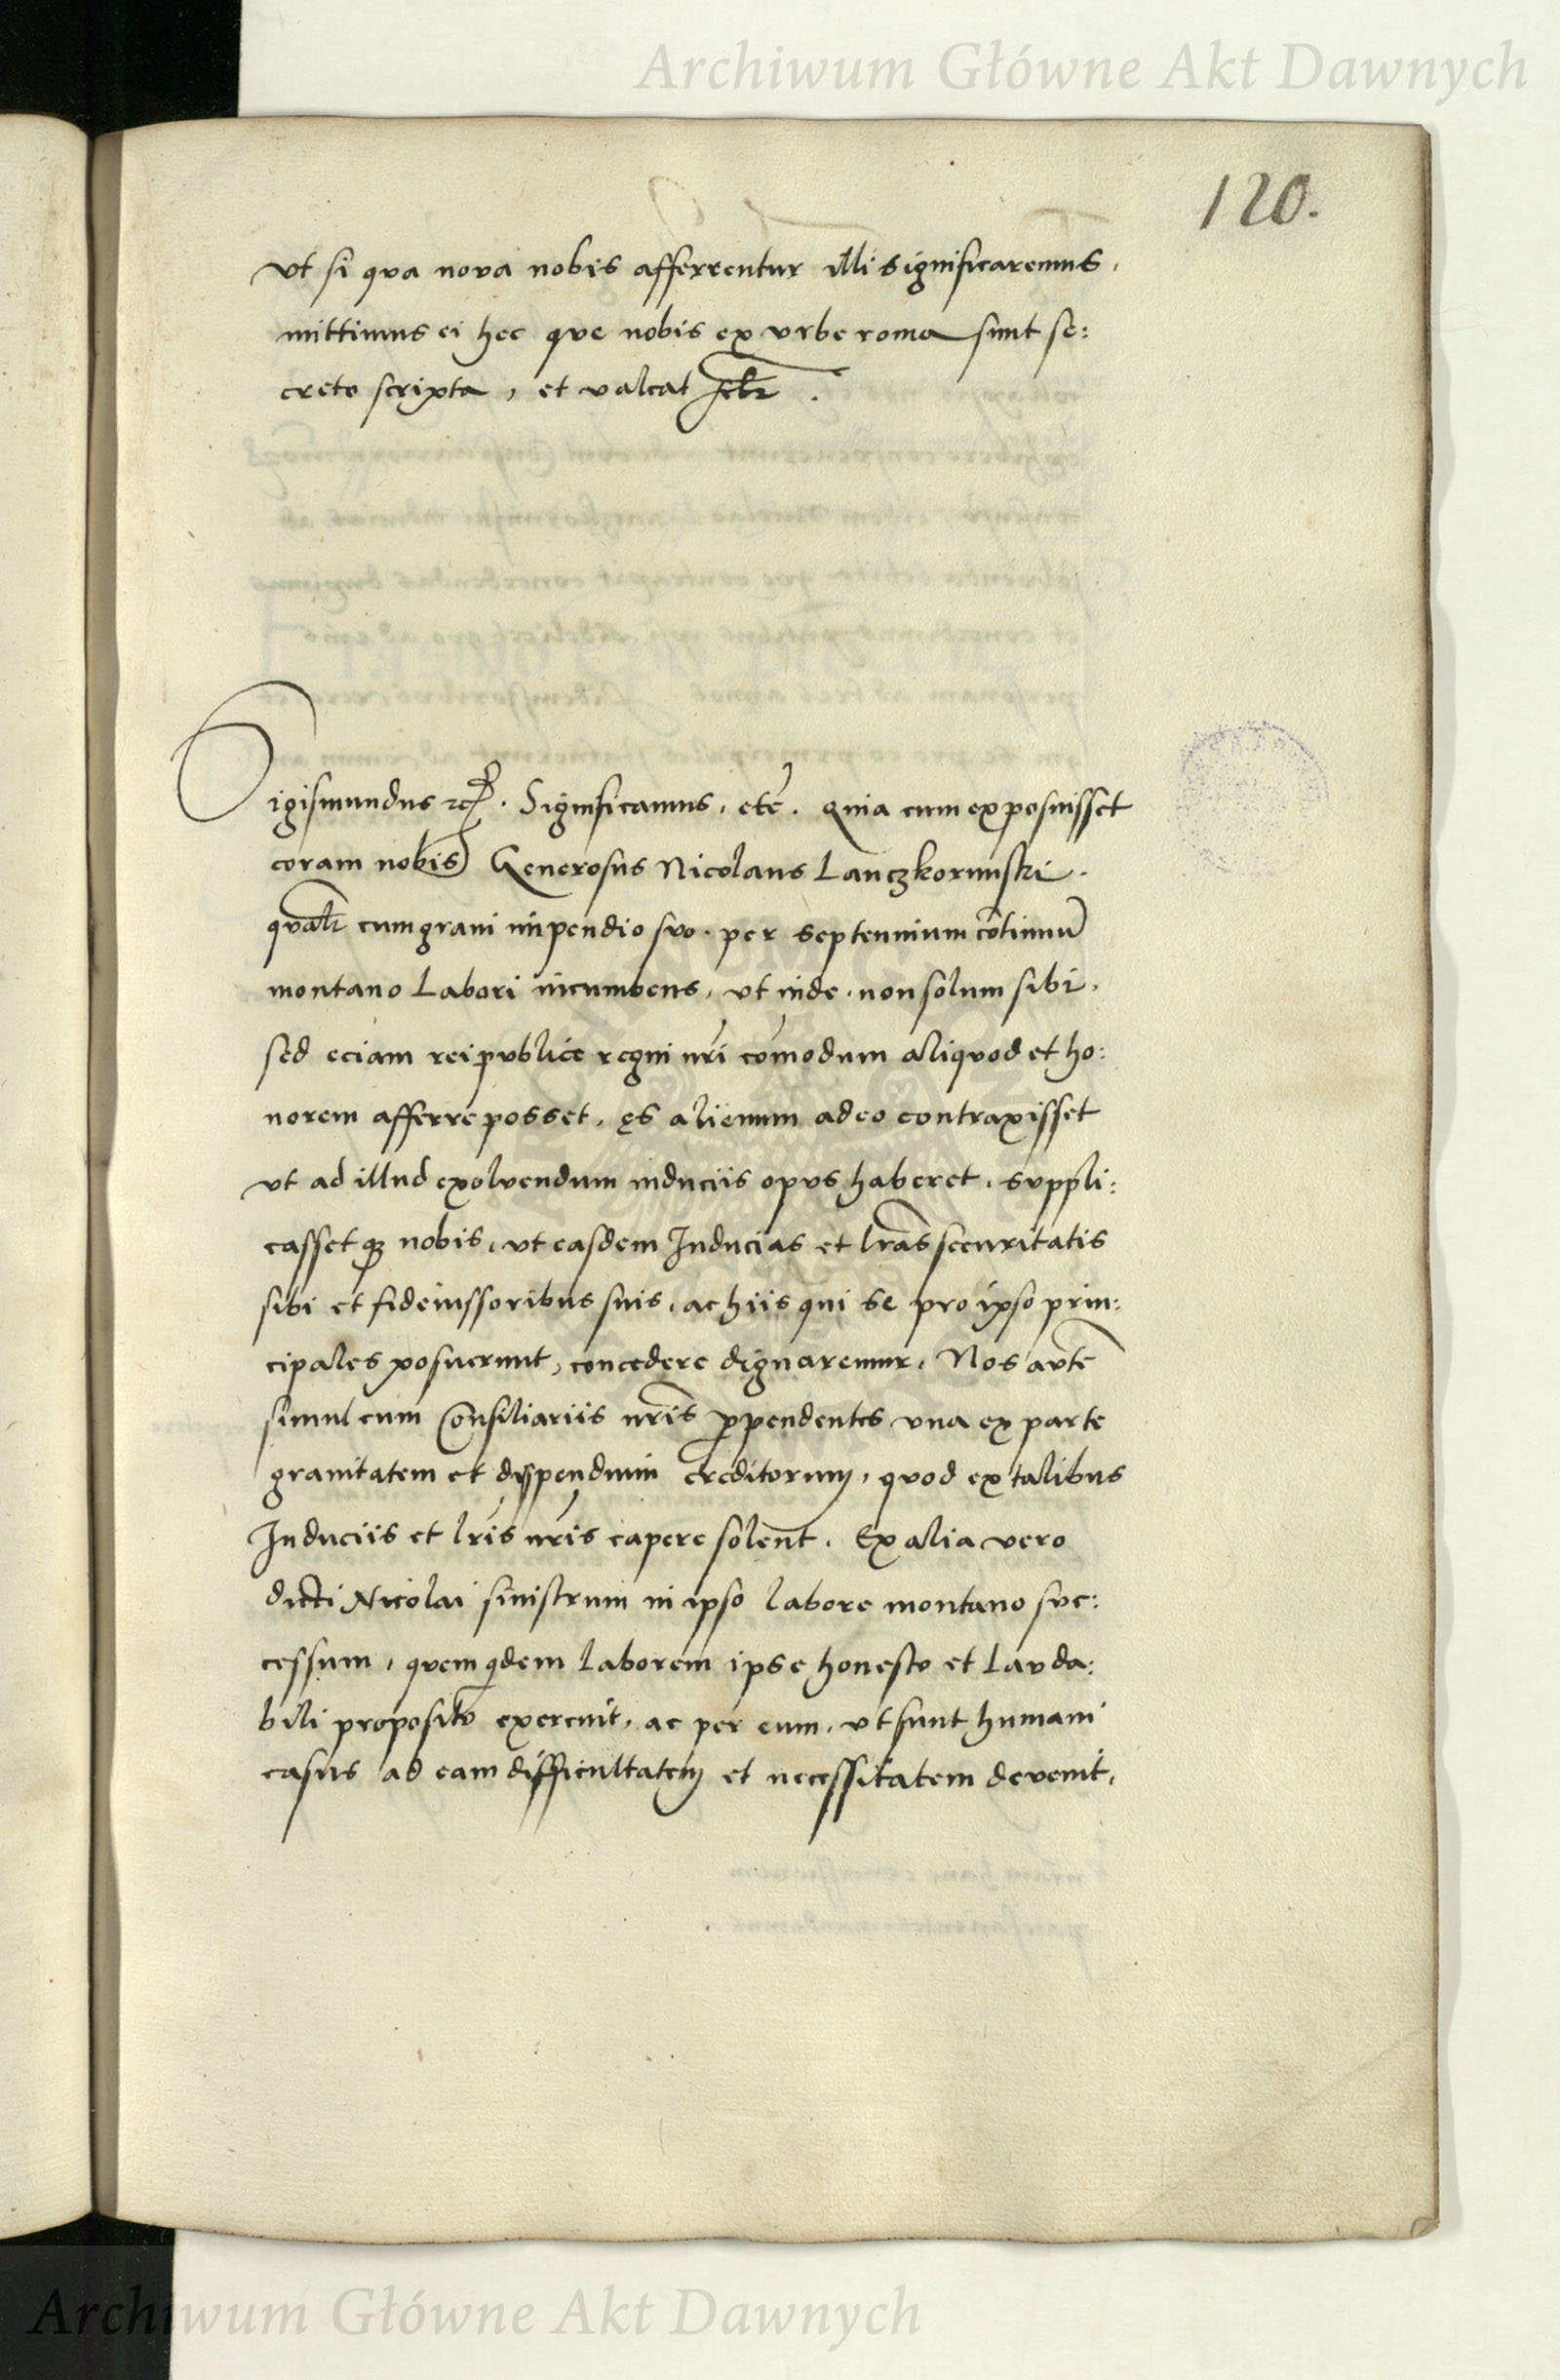 Archiwum Główne Akt Dawnych
120.
vt si qva nova nobis afferrentur illi significaremus,
mittimus ei hec qve nobis ex vrbe roma sunt se:
creto scripta, et valeat .
Sigismundus rc. Significamus, etc. quia cum exposuisset
coram nobis Generosus Nicolaus Lanczkorunski.
qvalr cum gravi impendio svo. per septennium cōtinuū
montano Labori incumbens, vt inde, non solum sibi,
sed eciam reipvblice regni nri cōmodum aliqvod et ho:
norem afferre posset, ęs alienum adeo contraxisset
vt ad illud exolvendum induciis opvs haberet, svppli:
casset q3 nobis, vt easdem Inducias et lras securitatis
sibi et fideiussoribus suis, ac hiis qui se pro ipso prin:
cipales posuerunt, concedere dignaremur, Nos avte
simul cum Consiliariis nris ꝑpendentes vna ex parte
gravitatem et dispendium creditorum, qvod ex talibus
Induciis et lris nris capere solent. Ex alia vero
dicti Nicolai sinistrum in ipso labore montano svc:
cessum, qvem qdem laborem ipse honesto et lavda:
bili proposito exercuit, ac per eum, vt sunt humani
casus ad eam difficultatem et necessitatem devenit,
Archiwum Główne Akt Dawnych